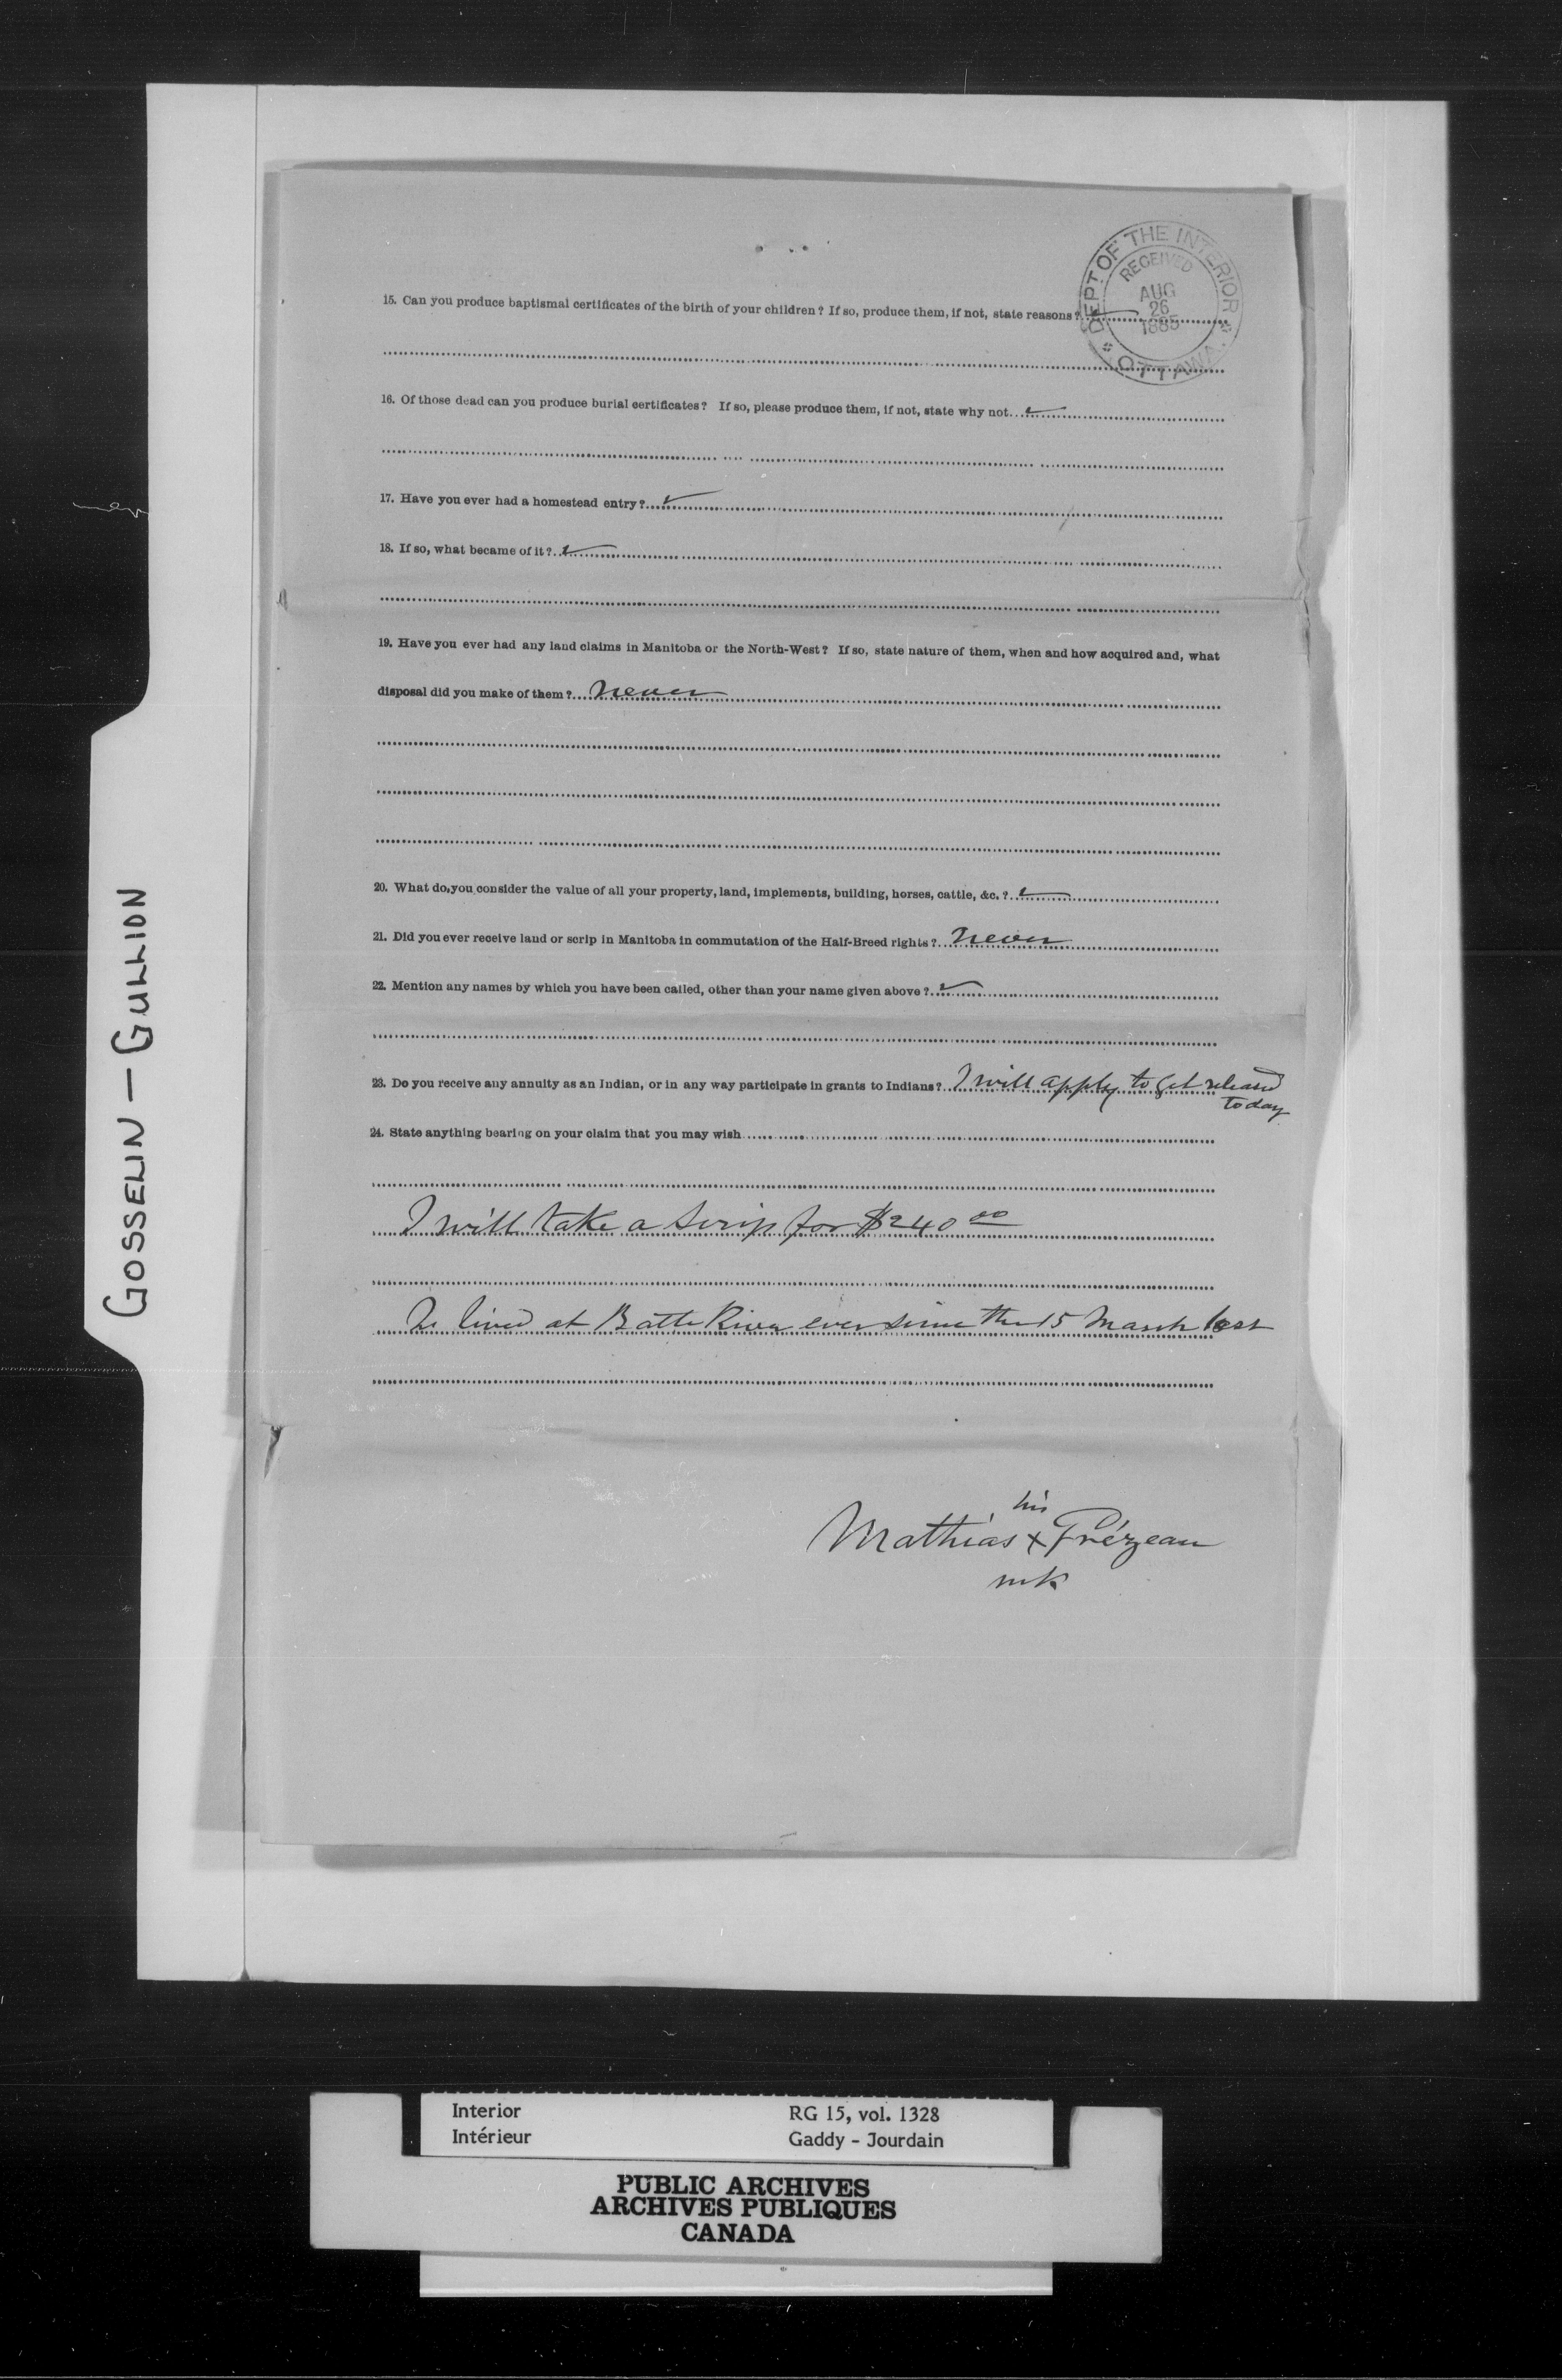 DEPT. OF THE INTERIOR
RECEIVED
AUG
26
1885
OTTAWA.
15. Can you produce baptismal certificates of the birth of your children? If so, produce them, if not, state reasons?
16. Of those dead can you produce burial certificates? If so, please produce them, if not, state why not
17. Have you ever had a homestead entry?
18. If so, what became of it?
19. Have you ever had any land claims in Manitoba or the North-West? If so, state nature of them, when and how acquired and, what
disposal did you make of them? Never
20. What do you consider the value of all your property, land, implements, building, horses, cattle, &c.?
21. Did you ever receive land or scrip in Manitoba in commutation of the Half-Breed rights? Never
22. Mention any names by which you have been called, other than your name given above?
23. Do you receive any annuity as an Indian, or in any way participate in grants to Indians? I will apply to get released
today
24. State anything bearing on your claim that you may wish
I will take a scrip for $240 00
lived at Battle River ever since the 15 March last
his
Mathias x Frézeau
mk
GOSSELIN — GULLION
Interior
Intérieur
RG 15, vol. 1328
Gaddy - Jourdain
PUBLIC ARCHIVES
ARCHIVES PUBLIQUES
CANADA